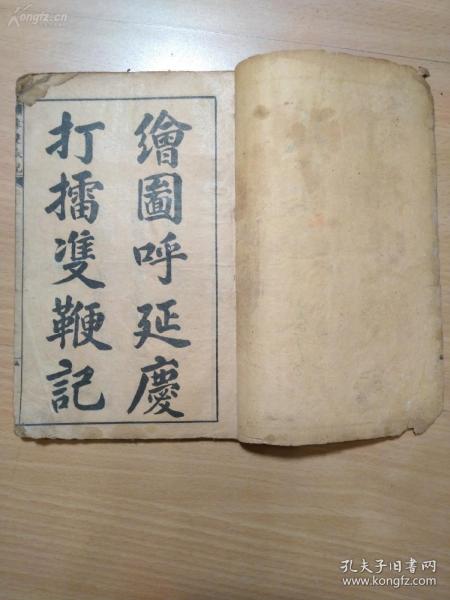 繪圖呼延慶
打擂䨇鞭記
Kongfz.cn
孔夫子旧书网
www.kongfz.com